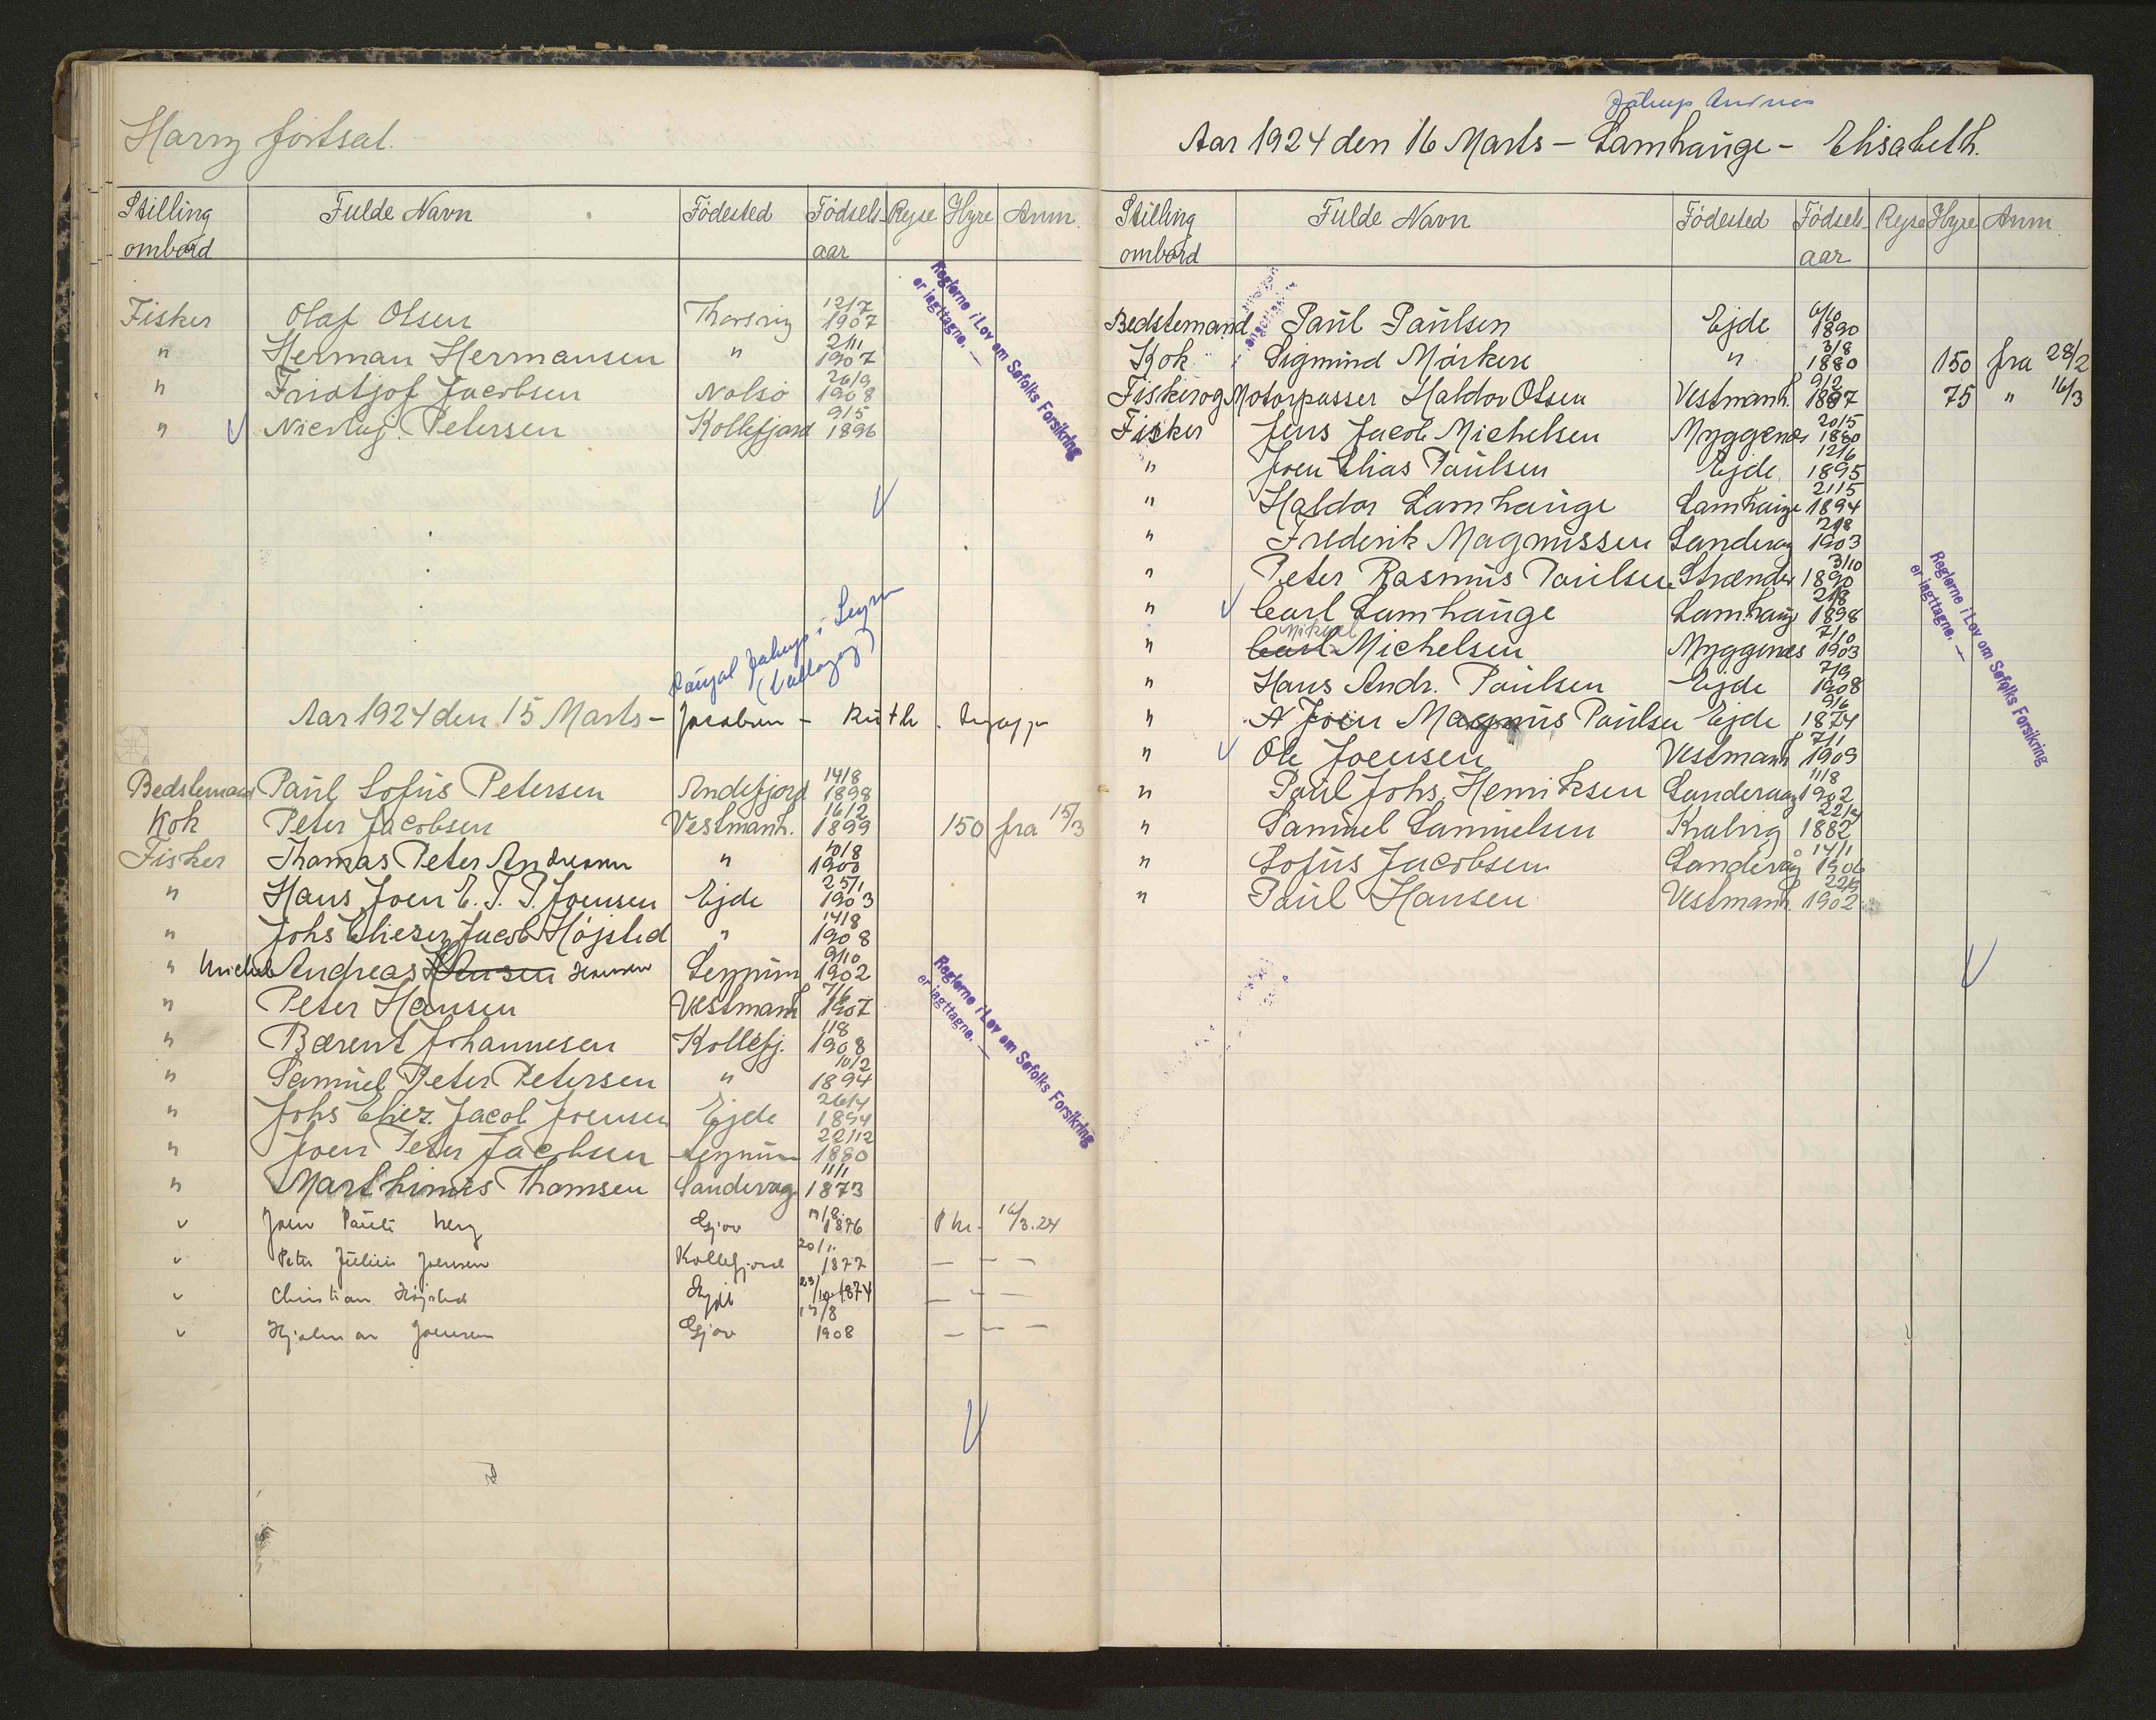 Harry fortsat.
Stilling ombord Fulde Navn Födested Födsels aar Rejse Hyre Anm.
Fisker Olaf Olsen Thorsvig 12/7 1907
" Herman Hermansen " 2/11 1907
" Fridtjof Jacobsen Nolsö 26/9 1908
" Nicolaj Petersen Kollefjord 9/5 1896
Reglerne i Lov om Søfolks Forsikring
er iagttagne. —
Aar 1924 den 15 Marts - Jacobsen - Ruth
Bedstemand Paul Sofus Petersen Andefjord 14/8 1898
Kok Peter Jacobsen Vestmanh. 16/2 1899 150 fra 15/3
Fisker Thomas Peter Andreasen " 10/8 1900
" Hans Joen E. J. P. Joensen Ejde 25/1 1903
" Johs Elieser Jacob Höjsted " 14/8 1908
" Michal Andreas Hansen Leynum 9/10 1902
" Peter Hansen Vestmanh 7/6 1907
" Bærent Johannesen Kollefj. 1/8 1908
" Samuel Peter Petersen " 10/2 1894
" Johs Eliez. Jacob Joensen Ejde 26/4 1894
" Joen Peter Jacobsen Leynum 22/12 1880
" Marthinus Thomsen Sandevag 11/1 1873
" Joen Pauli Gjov 1876 16/3.24
" Peter Julius Joensen Kollefjord 20/11 1877 — — —
" Christian Höjsted Ejde 1874 — — —
" Hjalmar Joensen Gjov 1908 — — —
Reglerne i Lov om Søfolks Forsikring
er iagttagne. —
Jákup Andrias
Aar 1924 den 16 Marts - Lamhauge - Elisabeth.
Stilling ombord Fulde Navn Födested Födsels aar Rejse Hyre Anm.
Bedstemand Paul Paulsen Ejde 6/10 1890
Kok Sigmund Mörkere " 3/8 1880 150 fra 28/2
Fisker og Motorpasser Haldor Olsen Vestmanh. 9/2 1897 75 " 16/3
Fisker Jens Jacob Michelsen Myggenæs 20/5 1880
" Joen Elias Paulsen Ejde 12/6 1895
" Haldor Lamhauge Lamhauge 21/5 1894
" Frederik Magnussen Sandevag 2/8 1903
" Peter Rasmus Paulsen Strænder 3/10 1890
" Carl Lamhauge Lamhauge 2/8 1898
" Carl Mikkjal Michelsen Myggenæs 7/10 1903
" Hans Andr. Paulsen Ejde 7/9 1908
" Joen Magnus Paulsen Ejde 9/6 1874
" Ole Joensen Vestmanh 7/1 1909
" Paul Johs. Henriksen Sandevaag 11/8 1902
" Samuel Samuelsen Kvalvig 22/4 1882
" Sofus Jacobsen Sandevåg 14/11 1906
" Paul Hansen Vestmanh. 1902
Reglerne i Lov om Søfolks Forsikring
er iagttagne. —